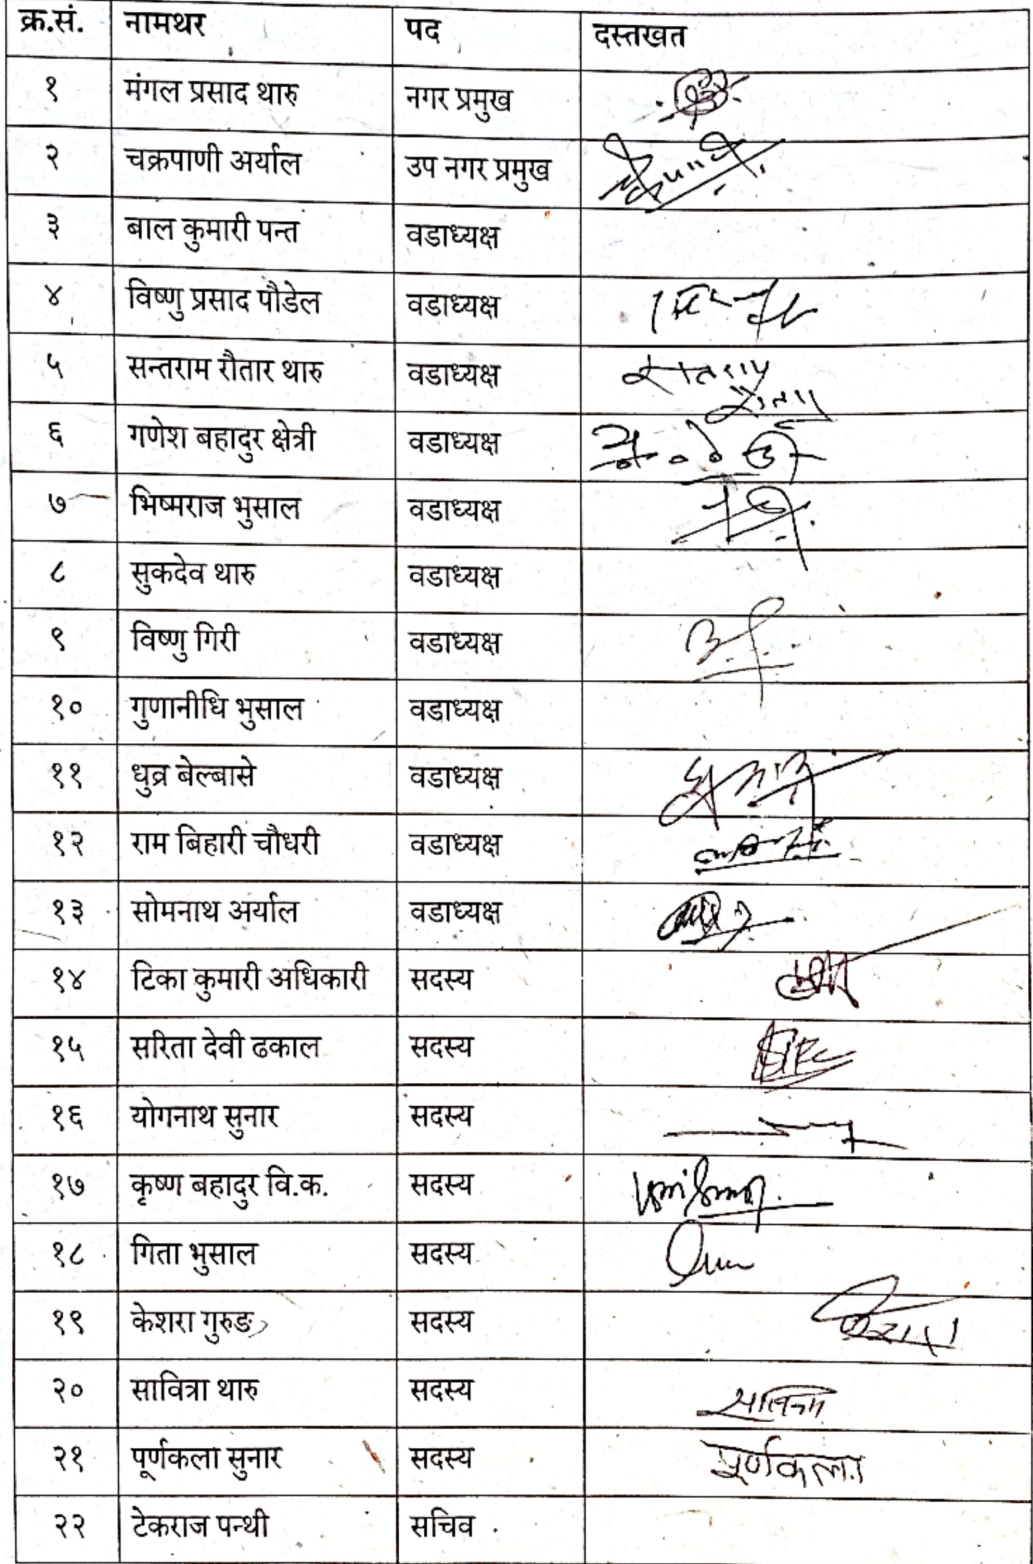 क्र.सं. नामथर पद दस्तखत
१ मंगल प्रसाद थारु नगर प्रमुख
२ चक्रपाणी अर्याल उप नगर प्रमुख
३ बाल कुमारी पन्त वडाध्यक्ष
४ विष्णु प्रसाद पौडेल वडाध्यक्ष
५ सन्तराम रौतार थारु वडाध्यक्ष
६ गणेश बहादुर क्षेत्री वडाध्यक्ष
७ भिष्मराज भुसाल वडाध्यक्ष
८ सुकदेव थारु वडाध्यक्ष
९ विष्णु गिरी वडाध्यक्ष
१० गुणानीधि भुसाल वडाध्यक्ष
११ धुव्र बेल्बासे वडाध्यक्ष
१२ राम बिहारी चौधरी वडाध्यक्ष
१३ सोमनाथ अर्याल वडाध्यक्ष
१४ टिका कुमारी अधिकारी सदस्य
१५ सरिता देवी ढकाल सदस्य
१६ योगनाथ सुनार सदस्य
१७ कृष्ण बहादुर वि.क. सदस्य
१८ गिता भुसाल सदस्य
१९ केशरा गुरुङ सदस्य
२० सावित्रा थारु सदस्य
२१ पूर्णकला सुनार सदस्य पूर्णकला
२२ टेकराज पन्थी सचिव